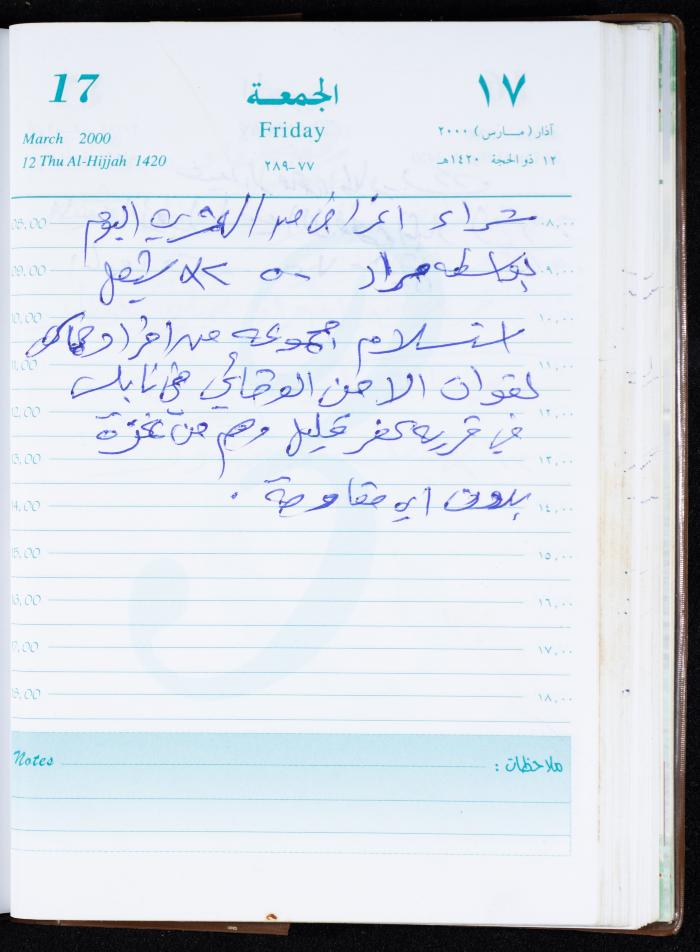 17 الجمعة ١٧
Friday
March 2000 آذار (مارس) ٢٠٠٠
12 Thu Al-Hijjah 1420 ٢٨٩-٧٧ ١٢ ذو الحجة ١٤٢٠هـ
08,00 ٠٨,٠٠
شراء اغراض من اليوم
09,00 ٠٩,٠٠
بواسطه مراد شيقل
10,00 ١٠,٠٠
استسلام مجموعه من افراد حماس
11,00 ١١,٠٠
لقوات الامن الوقائي في نابلس
12,00 ١٢,٠٠
في قريه كفر قليل وهم من غزة
13,00 ١٣,٠٠
بدون اي مقاومة .
14,00 ١٤,٠٠
15,00 ١٥,٠٠
16,00 ١٦,٠٠
17,00 ١٧,٠٠
18,00 ١٨,٠٠
Notes ملاحظات :